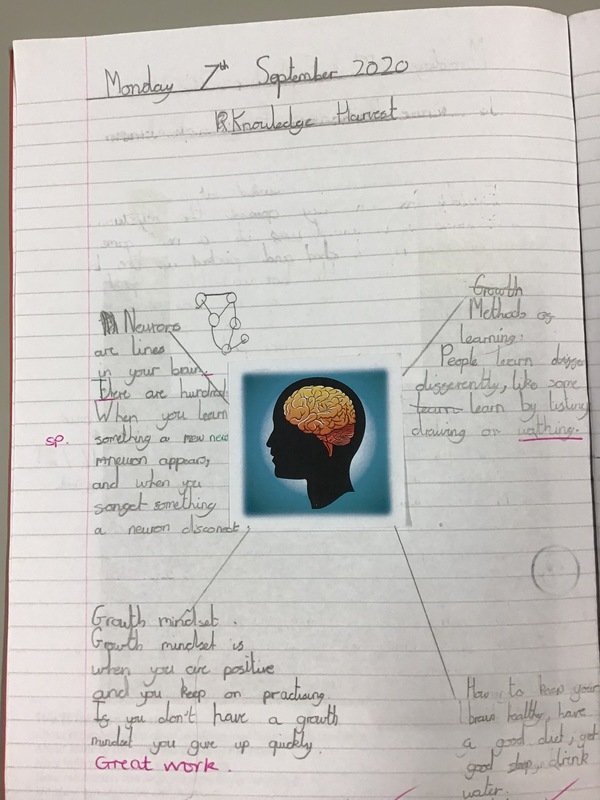 Monday 7th September 2020
Knowledge Harvest
Neurons
are lines
in your brain.
There are hundred
When you learn
something a new new
neuron appears,
and when you
sorget something
a neuron disconect,
sp.
Growth
Methods of
learning:
People learn
disgerently, like some
learn learn by listing
drawing or wathing.
Growth mindset.
Growth mindset is
when you are positive
and you keep on practising.
Is you don't have a growth
mindset you give up quickly.
Great work.
How to keep your
brain healthy, have
a good diet, get
good sleep, drink
water.